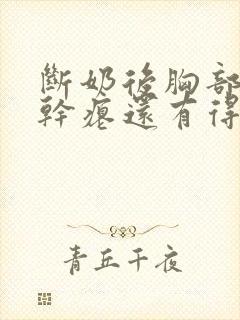 斷奶後胸部
幹癟還有得
青丘千夜